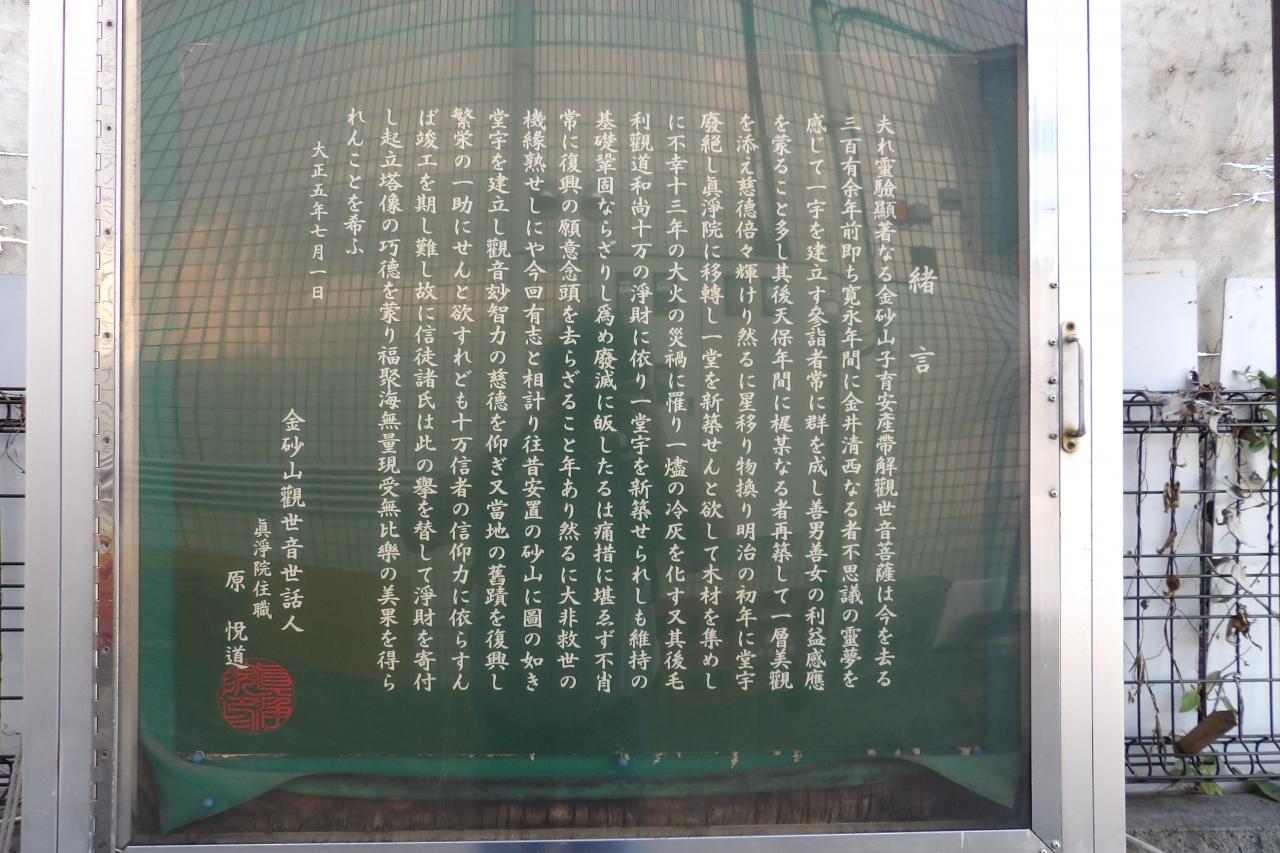 緒言
夫れ靈驗顯著なる金砂山子育安産帶解觀世音菩薩は今を去る
三百有余年前即ち寛永年間に金井清西なる者不思議の靈夢を
感じて一宇を建立す叅詣者常に群を成し善男善女の利益感應
を蒙ること多し其後天保年間に梶某なる者再築して一層美觀
を添え慈德倍々輝けり然るに星移り物換り明治の初年に堂宇
廢絕し眞淨院に移轉し一堂を新築せんと欲して木材を集めし
に不幸十三年の大火の災禍に罹り一燼の冷灰を化す又其後毛
利觀道和尚十万の淨財に依り一堂宇を新築せられしも維持の
基礎鞏固ならざりし爲め廢滅に皈したるは痛措に堪ゑず不肖
常に復興の願意念頭を去らざること年あり然るに大非救世の
機緣熟せしにや今回有志と相計り往昔安置の砂山に圖の如き
堂宇を建立し觀音玅智力の慈德を仰ぎ又當地の舊蹟を復興し
繁栄の一助にせんと欲すれども十万信者の信仰力に依らすん
ば竣工を期し難し故に信徒諸氏は此の擧を替して淨財を寄付
し起立塔像の巧德を蒙り福聚海無量現受無比樂の美果を得ら
れんことを希ふ
大正五年七月一日
金砂山觀世音世話人
眞淨院住職
原 悅道
眞淨院印